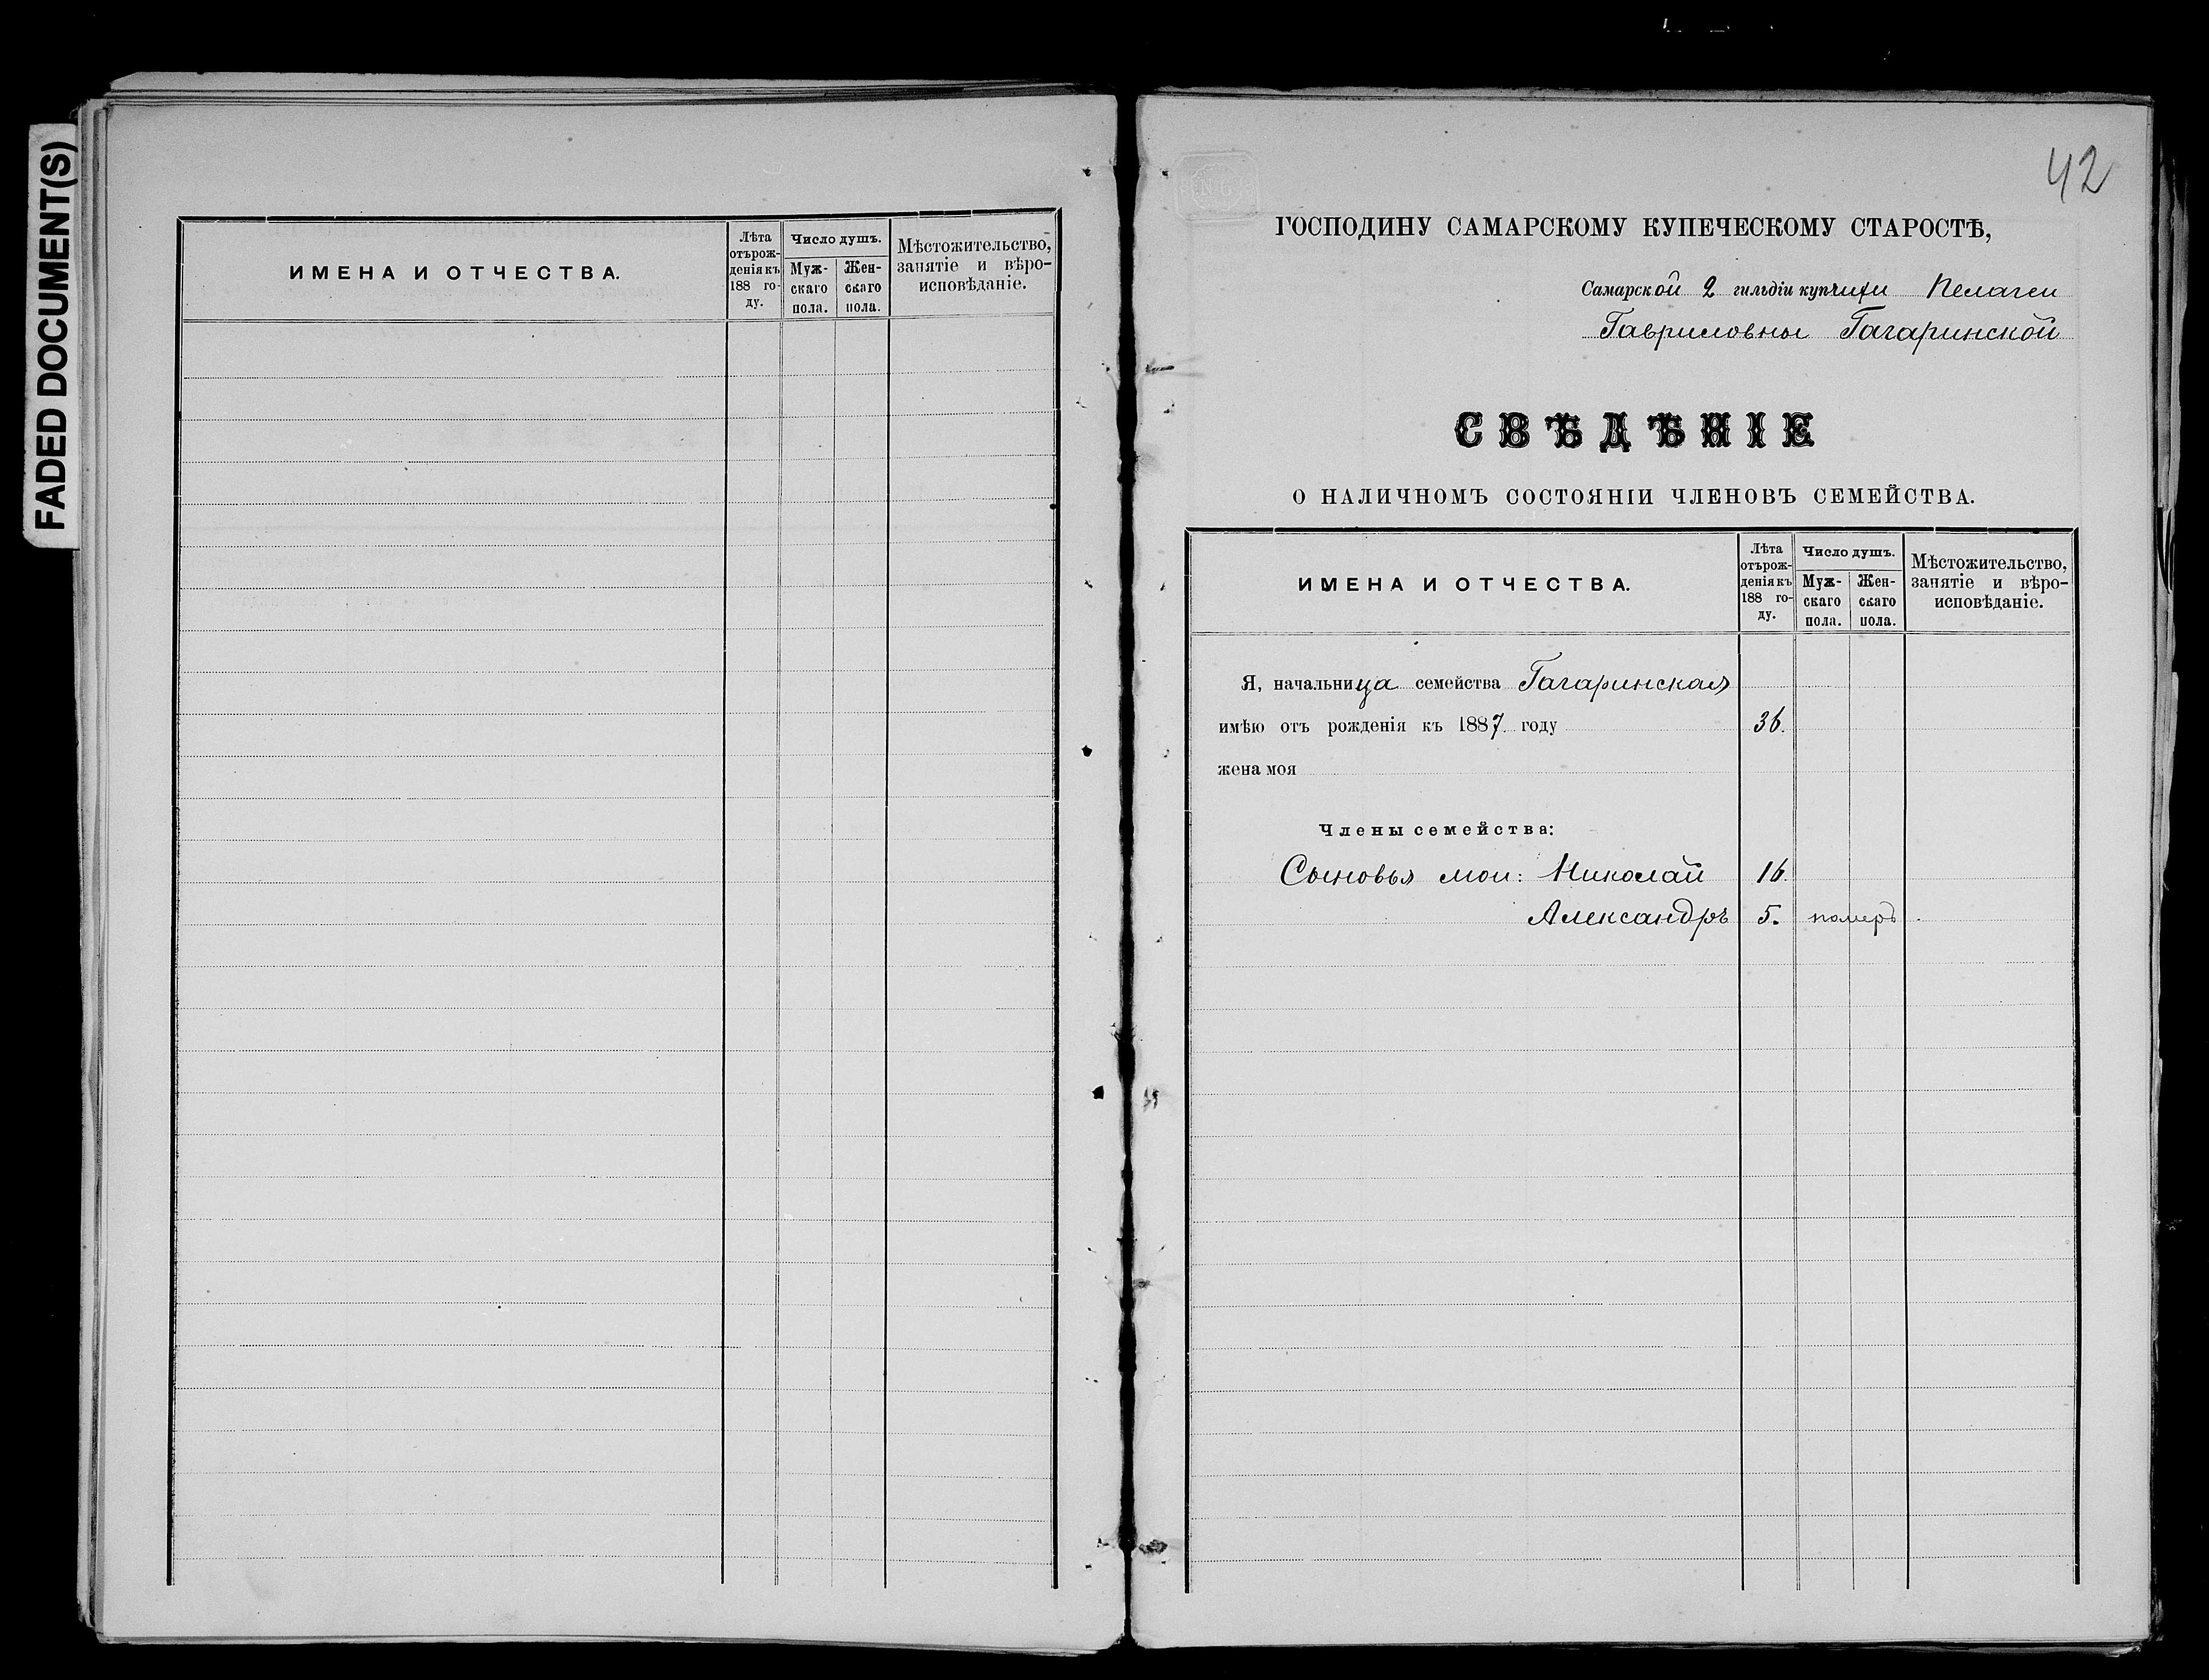 FADED DOCUMENT(S)
ИМЕНА И ОТЧЕСТВА.
Лѣта
отърож-
денія къ
188 го-
ду.
Число душъ.
Муж-
скаго
пола.
Жен-
скаго
пола.
Мѣстожительство,
занятіе и вѣро-
исповѣданіе.
42
ГОСПОДИНУ САМАРСКОМУ КУПЕЧЕСКОМУ СТАРОСТѢ,
Самарской 2 гильдіи купчихи Пелагеи
Гавриловны Гагаринской
СВѢДѢНІЕ
О НАЛИЧНОМЪ СОСТОЯНІИ ЧЛЕНОВЪ СЕМЕЙСТВА.
ИМЕНА И ОТЧЕСТВА.
Лѣта
отърож-
денія къ
188 го-
ду.
Число душъ.
Муж-
скаго
пола.
Жен-
скаго
пола.
Мѣстожительство,
занятіе и вѣро-
исповѣданіе.
Я, начальница семейства Гагаринская
имѣю отъ рожденія къ 1887 году 36.
жена моя
Члены семейства:
Сыновья мои: Николай 16.
Александръ 5. померъ